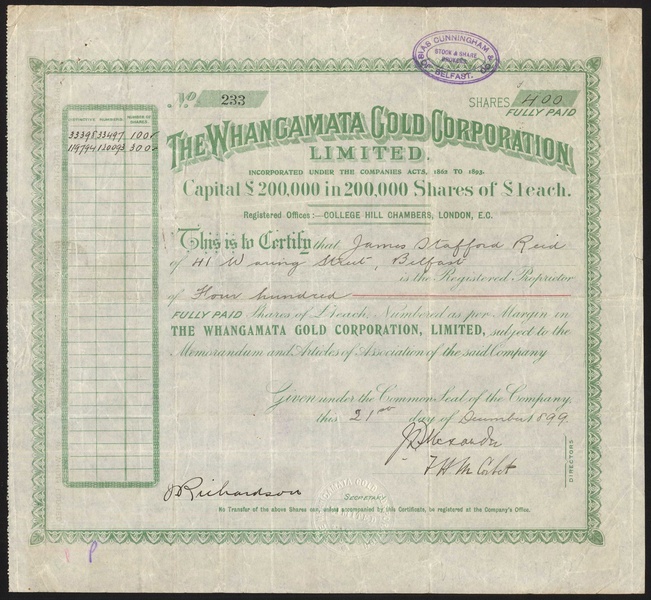 BIAS CUNNINGHAM & CO.
STOCK & SHARE
BROKERS
BELFAST.
No. 233
SHARES 400
FULLY PAID
DISTINCTIVE NUMBERS. NUMBER OF SHARES.
33398 33497 100
300
THE WHANGAMATA GOLD CORPORATION
LIMITED.
INCORPORATED UNDER THE COMPANIES ACTS, 1862 TO 1893.
Capital £200,000 in 200,000 Shares of £1 each.
Registered Offices:—COLLEGE HILL CHAMBERS, LONDON, E.C.
This is to Certify that James Stafford Reid
of 41 Waring Street, Belfast
is the Registered Proprietor
of Four hundred
FULLY PAID Shares of £1 each, Numbered as per Margin in
THE WHANGAMATA GOLD CORPORATION, LIMITED, subject to the
Memorandum and Articles of Association of the said Company
Given under the Common Seal of the Company,
this 21st day of December 1899
DIRECTORS
J Richardson
SECRETARY
No Transfer of the above Shares can, unless accompanied by this Certificate, be registered at the Company's Office.